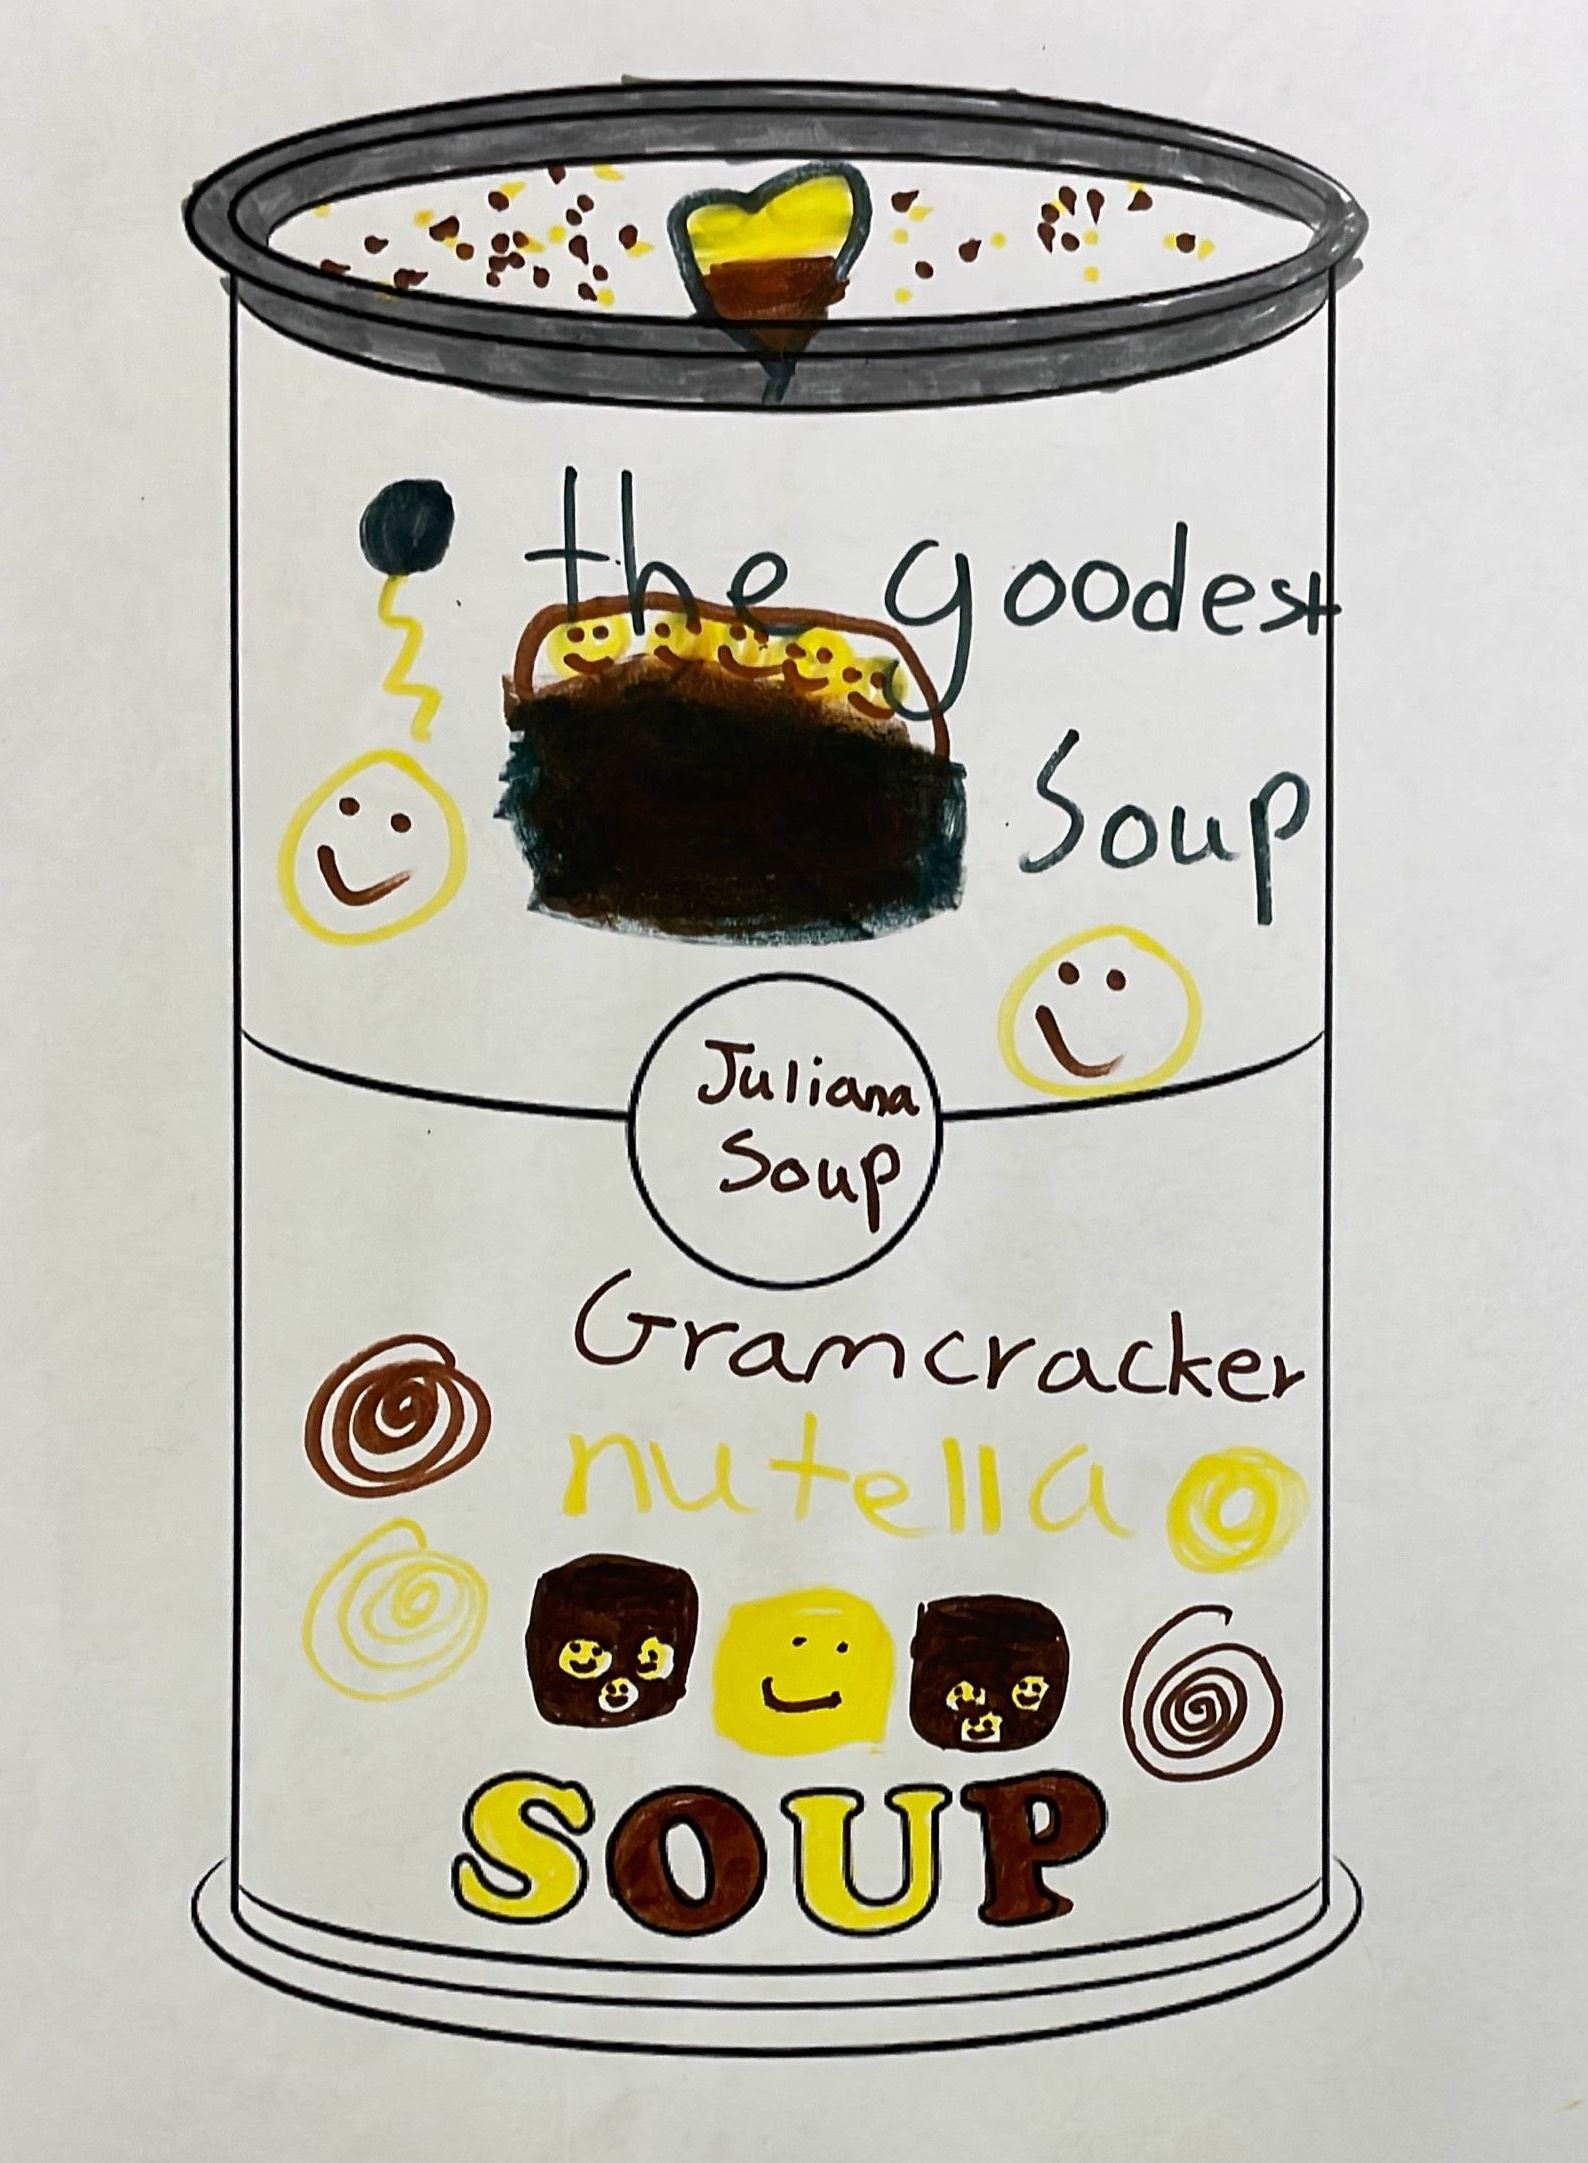 the goodest
Soup
Juliana
Soup
Gramcracker
nutella
SOUP